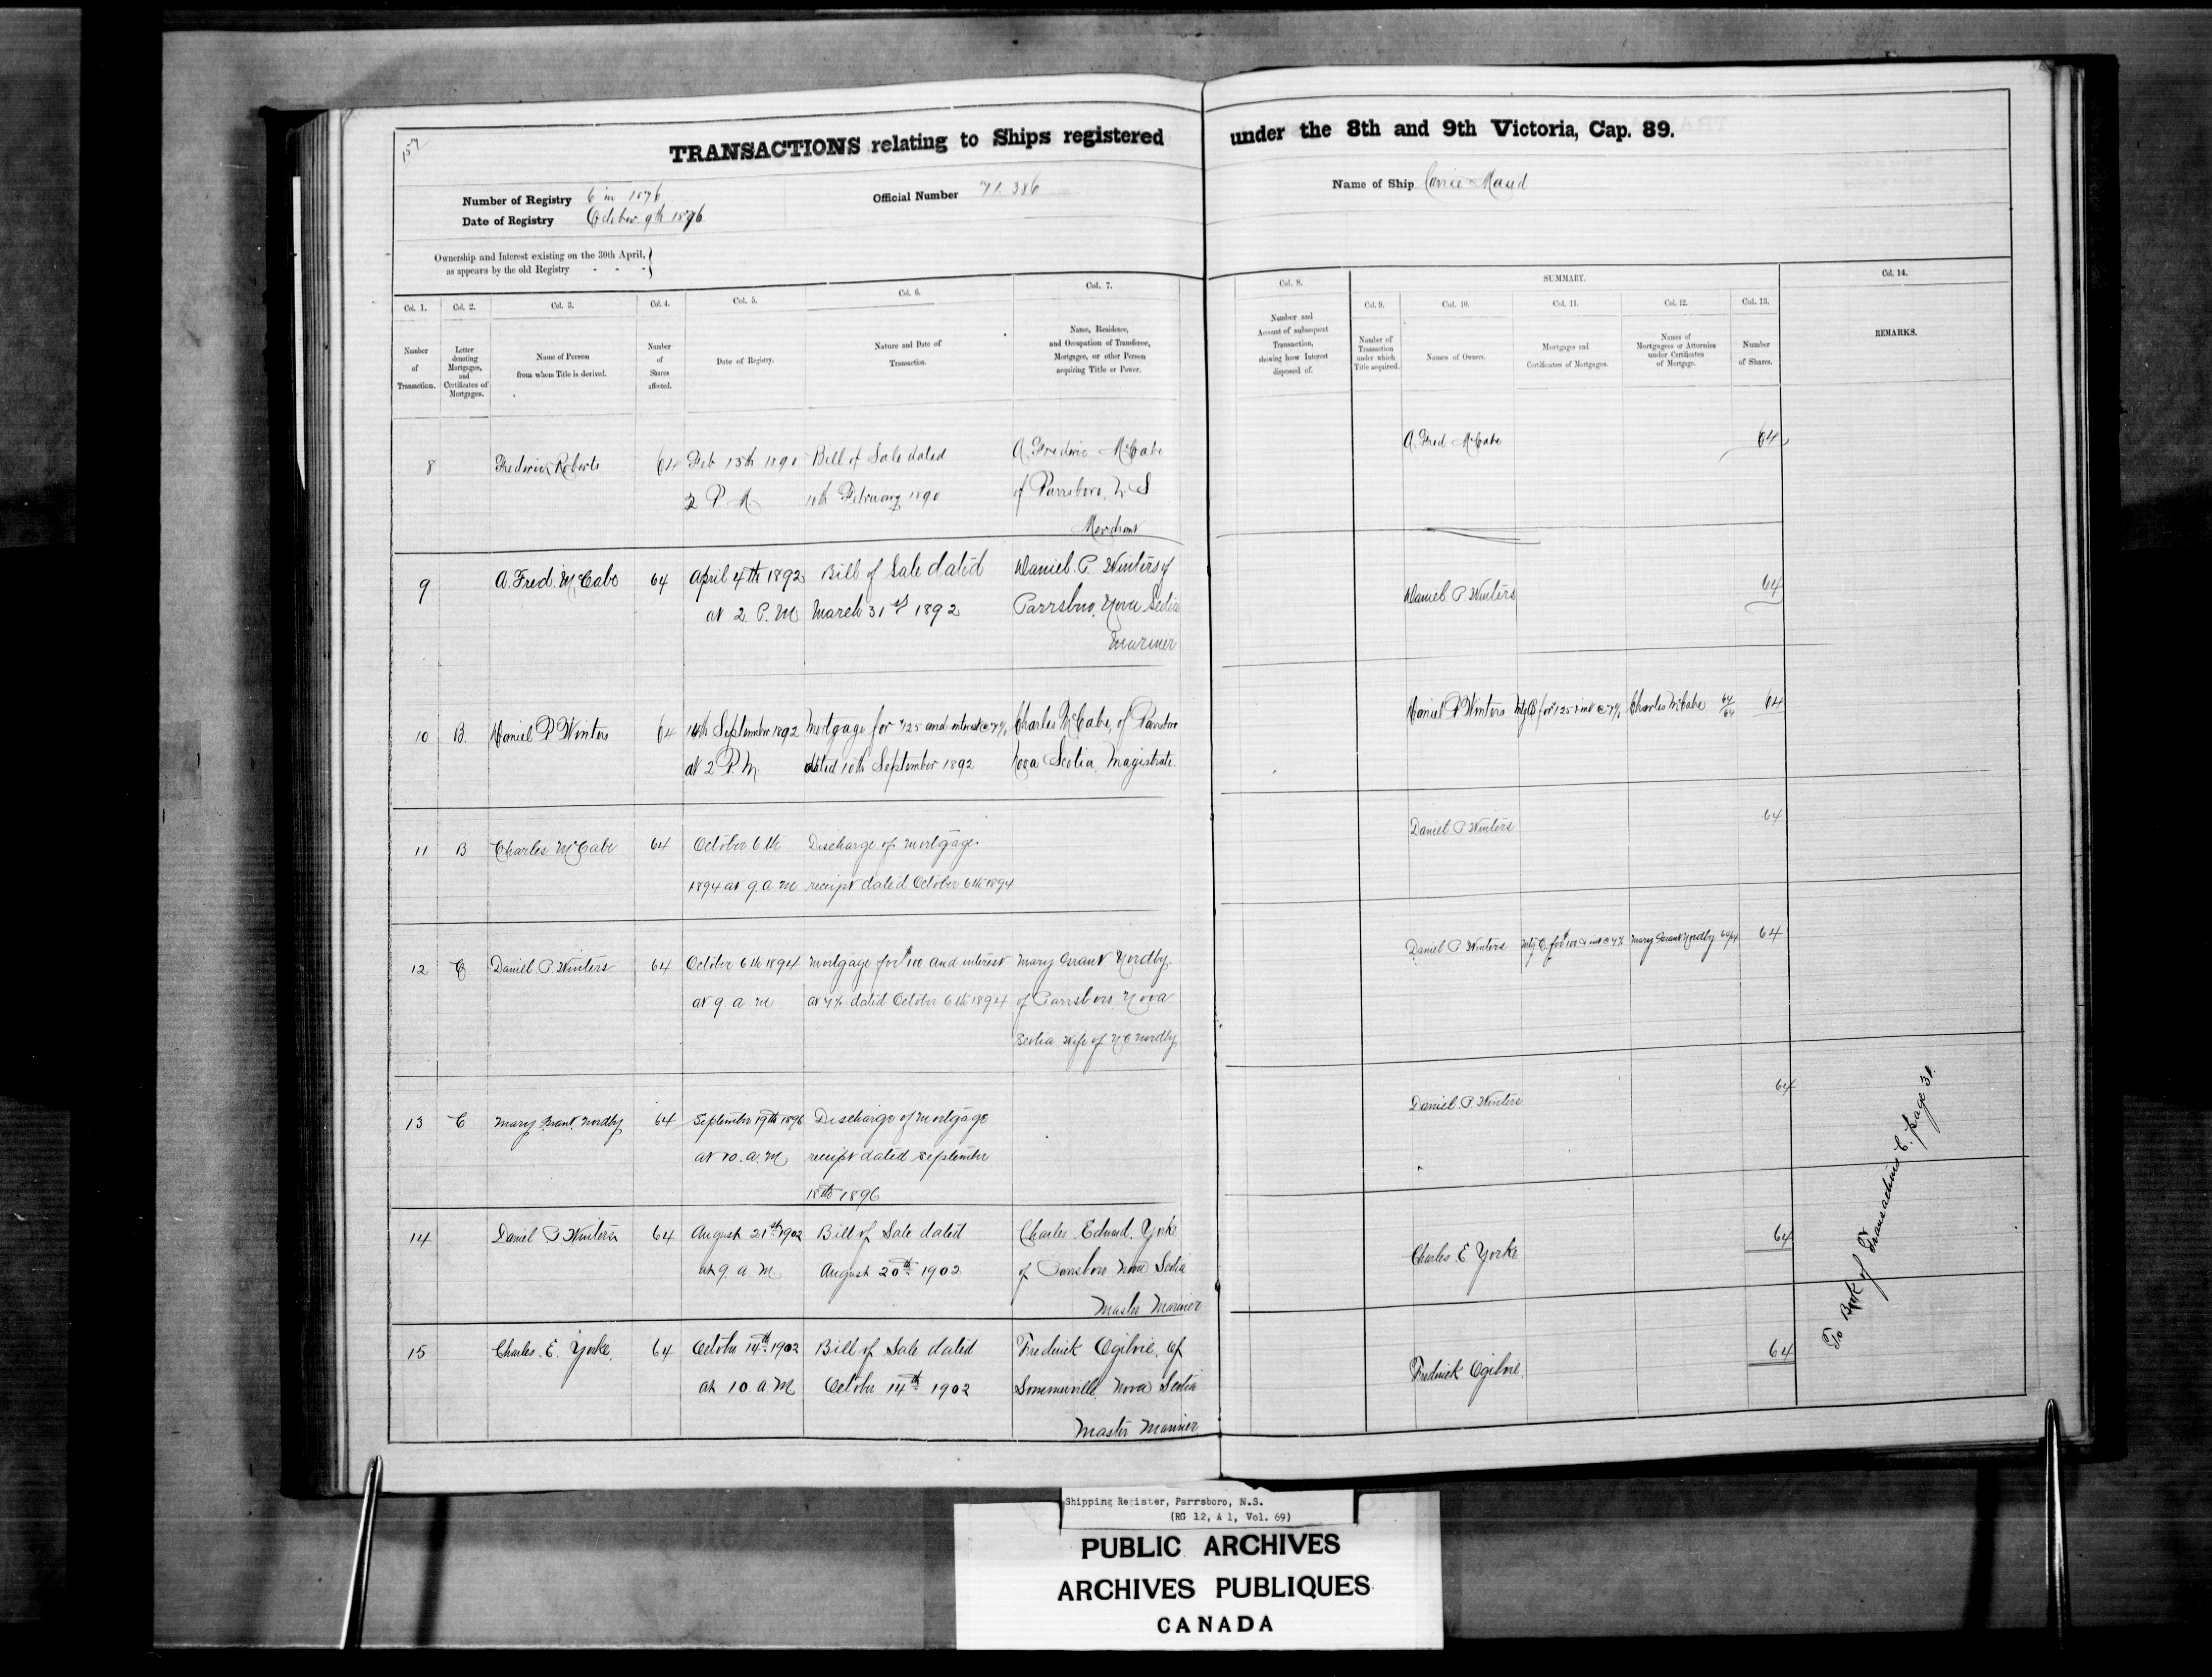 157
TRANSACTIONS relating to Ships registered under the 8th and 9th Victoria, Cap. 89.
Number of Registry 6 in 1876
Official Number 71.386
Name of Ship Carrie Maud
Date of Registry October 9th 1876
Ownership and Interest existing on the 30th April,
as appears by the old Registry - - -
SUMMARY.
Col. 1.
Number
of
Transaction.
Col. 2.
Letter
denoting
Mortgages,
and
Certificates of
Mortgages.
Col. 3.
Name of Person
from whom Title is derived.
Col. 4.
Number
of
Shares
affected.
Col. 5.
Date of Registry.
Col. 6.
Nature and Date of
Transaction.
Col. 7.
Name, Residence,
and Occupation of Transferee,
Mortgagee, or other Person
acquiring Title or Power.
Col. 8.
Number and
Amount of subsequent
Transaction,
showing how Interest
disposed of.
Col. 9.
Number of
Transaction
under which
Title acquired.
Col. 10.
Names of Owners.
Col. 11.
Mortgages and
Certificates of Mortgages.
Col. 12.
Names of
Mortgagees or Attornies
under Certificates
of Mortgage.
Col. 13.
Number
of Shares.
Col. 14.
REMARKS.
8 Frederick Roberts 64 Feb 13th 1890 Bill of Sale dated A Frederic McCabe A Fred McCabe 64
2 P. M 10th February 1890 of Parrsboro, N S
Merchant
9 A. Fred. McCabe 64 April 4th 1892 Bill of Sale dated Daniel. P. Winters of Daniel P Winters 64
at 2. P. M March 31st 1892 Parrsboro, Nova Scotia
Mariner
10 B. Daniel P Winters 64 14th September 1892 Mortgage for $125 and interest @ 7% Charles McCabe, of Parrsboro Daniel P Winters Mtg B for $125 & int @ 7% Charles McCabe 64/64 64
at 2 P. M. dated 10th September 1892 Nova Scotia, Magistrate.
11 B Charles McCabe 64 October 6th Discharge of mortgage. Daniel P Winters 64
1894 at 9. a. m receipt dated October 6th 1894
12 C Daniel. P. Winters 64 October 6th 1894 Mortgage for $100 and interest Mary Grant Nordby. Daniel P Winters Mtg C. for $100 & int @ 7% Mary Grant Nordby 64/64 64
at 9 a m at 7% dated October 6th 1894 of Parrsboro, Nova
Scotia. Wife of N C Nordby
13 C Mary Grant. Nordby 64 September 19th 1896 Discharge of Mortgage Daniel. P. Winters 64
at 10. a. M receipt dated September
18th 1896
14 Daniel P Winters 64 August 21st 1902 Bill of Sale dated Charles Edward. Yorke Charles. E Yorke 64
at 9. a. M. August 20th 1902. of Parrsboro Nova Scotia
Master Mariner
15 Charles. E. Yorke. 64 October 14th 1902 Bill of Sale dated Frederick Ogilvie. of Frederick Ogilvie. 64
at 10. a. M October 14th 1902 Sommerville. Nova Scotia
Master Mariner
To Book of Transactions C. page 31.
Shipping Register, Parrsboro, N.S.
(RG 12, A 1, Vol. 69)
PUBLIC ARCHIVES
ARCHIVES PUBLIQUES
CANADA